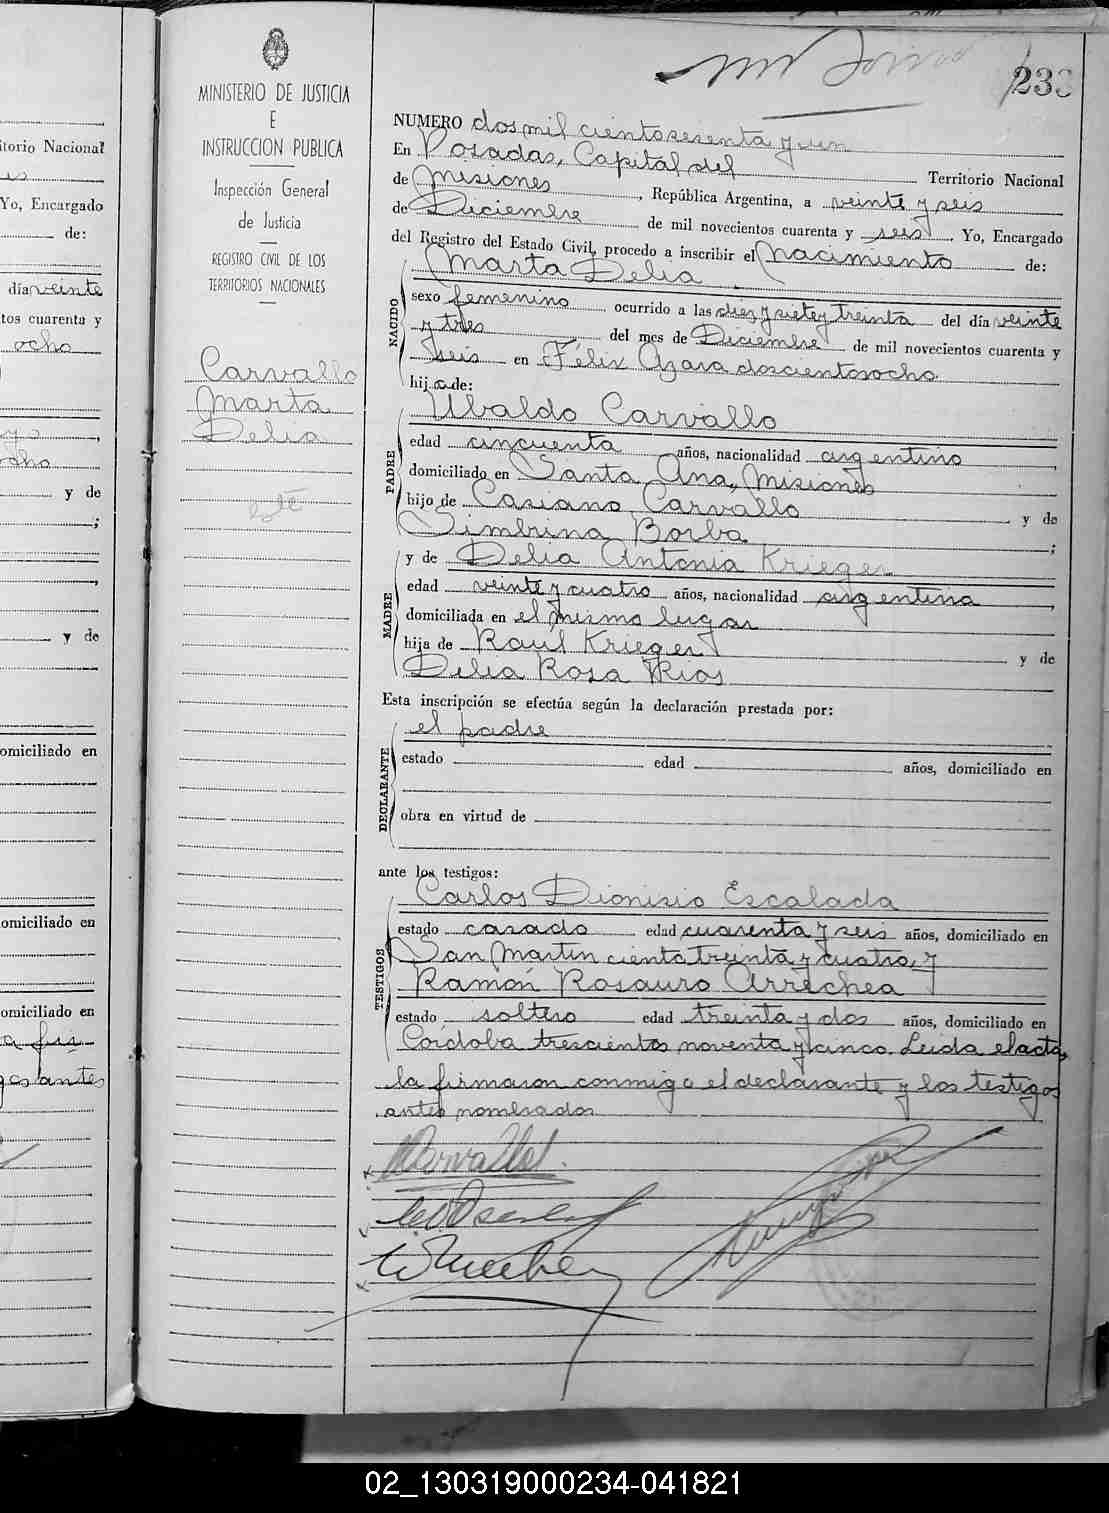 itorio Nacional
Yo, Encargado
de:
día veinte
tos cuarenta y
ocho
ocho
y de
;
,
y de
omiciliado en
omiciliado en
omiciliado en
antes
MINISTERIO DE JUSTICIA
E
INSTRUCCION PUBLICA
Inspección General
de Justicia
REGISTRO CIVIL DE LOS
TERRITORIOS NACIONALES
Carvallo
Marta
Delia
233
NUMERO dos mil ciento sesenta y un
En Posadas, Capital del Territorio Nacional
de Misiones, República Argentina, a veinte y seis
de Diciembre de mil novecientos cuarenta y seis. Yo, Encargado
del Registro del Estado Civil, procedo a inscribir el nacimiento de:
Marta Delia
NACIDO
sexo femenino ocurrido a las diez y siete y treinta del día veinte
y tres del mes de Diciembre de mil novecientos cuarenta y
seis en Félix Azara doscientos ocho
hija de:
Ubaldo Carvallo
PADRE
edad cincuenta años, nacionalidad argentino,
domiciliado en Santa Ana, Misiones
hijo de Casiano Carvallo y de
Simbrina Borba;
y de Delia Antonia Krieger
MADRE
edad veinte y cuatro años, nacionalidad argentina,
domiciliada en el mismo lugar
hija de Raúl Krieger y de
Delia Rosa Rios
Esta inscripción se efectúa según la declaración prestada por:
el padre
DECLARANTE
estado edad años, domiciliado en
obra en virtud de
ante los testigos:
Carlos Dionisio Escalada
TESTIGOS
estado casado edad cuarenta y seis años, domiciliado en
San Martin ciento treinta y cuatro, y
Ramón Rosauro Arrechea
estado soltero edad treinta y dos años, domiciliado en
Córdoba trescientos noventa y cinco. Leida el acta,
la firmaron conmigo el declarante y los testigos
antes nombrados
02_130319000234-041821